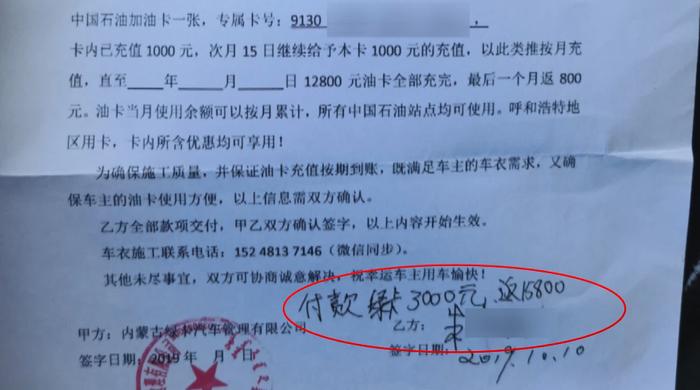 中国石油加油卡一张，专属卡号：9130
卡内已充值1000元，次月15日继续给予本卡1000元的充值，以此类推按月充
值，直至____年____月____日12800元油卡全部充完，最后一个月返800
元。油卡当月使用余额可以按月累计，所有中国石油站点均可使用。呼和浩特地
区用卡，卡内所含优惠均可享用！
为确保施工质量，并保证油卡充值按期到账，既满足车主的车衣需求，又确
保车主的油卡使用方便，以上信息需双方确认。
乙方全部款项交付，甲乙双方确认签字，以上内容开始生效。
车衣施工联系电话：152 4813 7146（微信同步）。
其他未尽事宜，双方可协商诚意解决，祝幸运车主用车愉快！
付款 绿卡 3000元，返15800
甲方：内蒙古绿卡汽车管理有限公司 乙方：
签字日期：2019年 月 日 签字日期： 2019.10.10